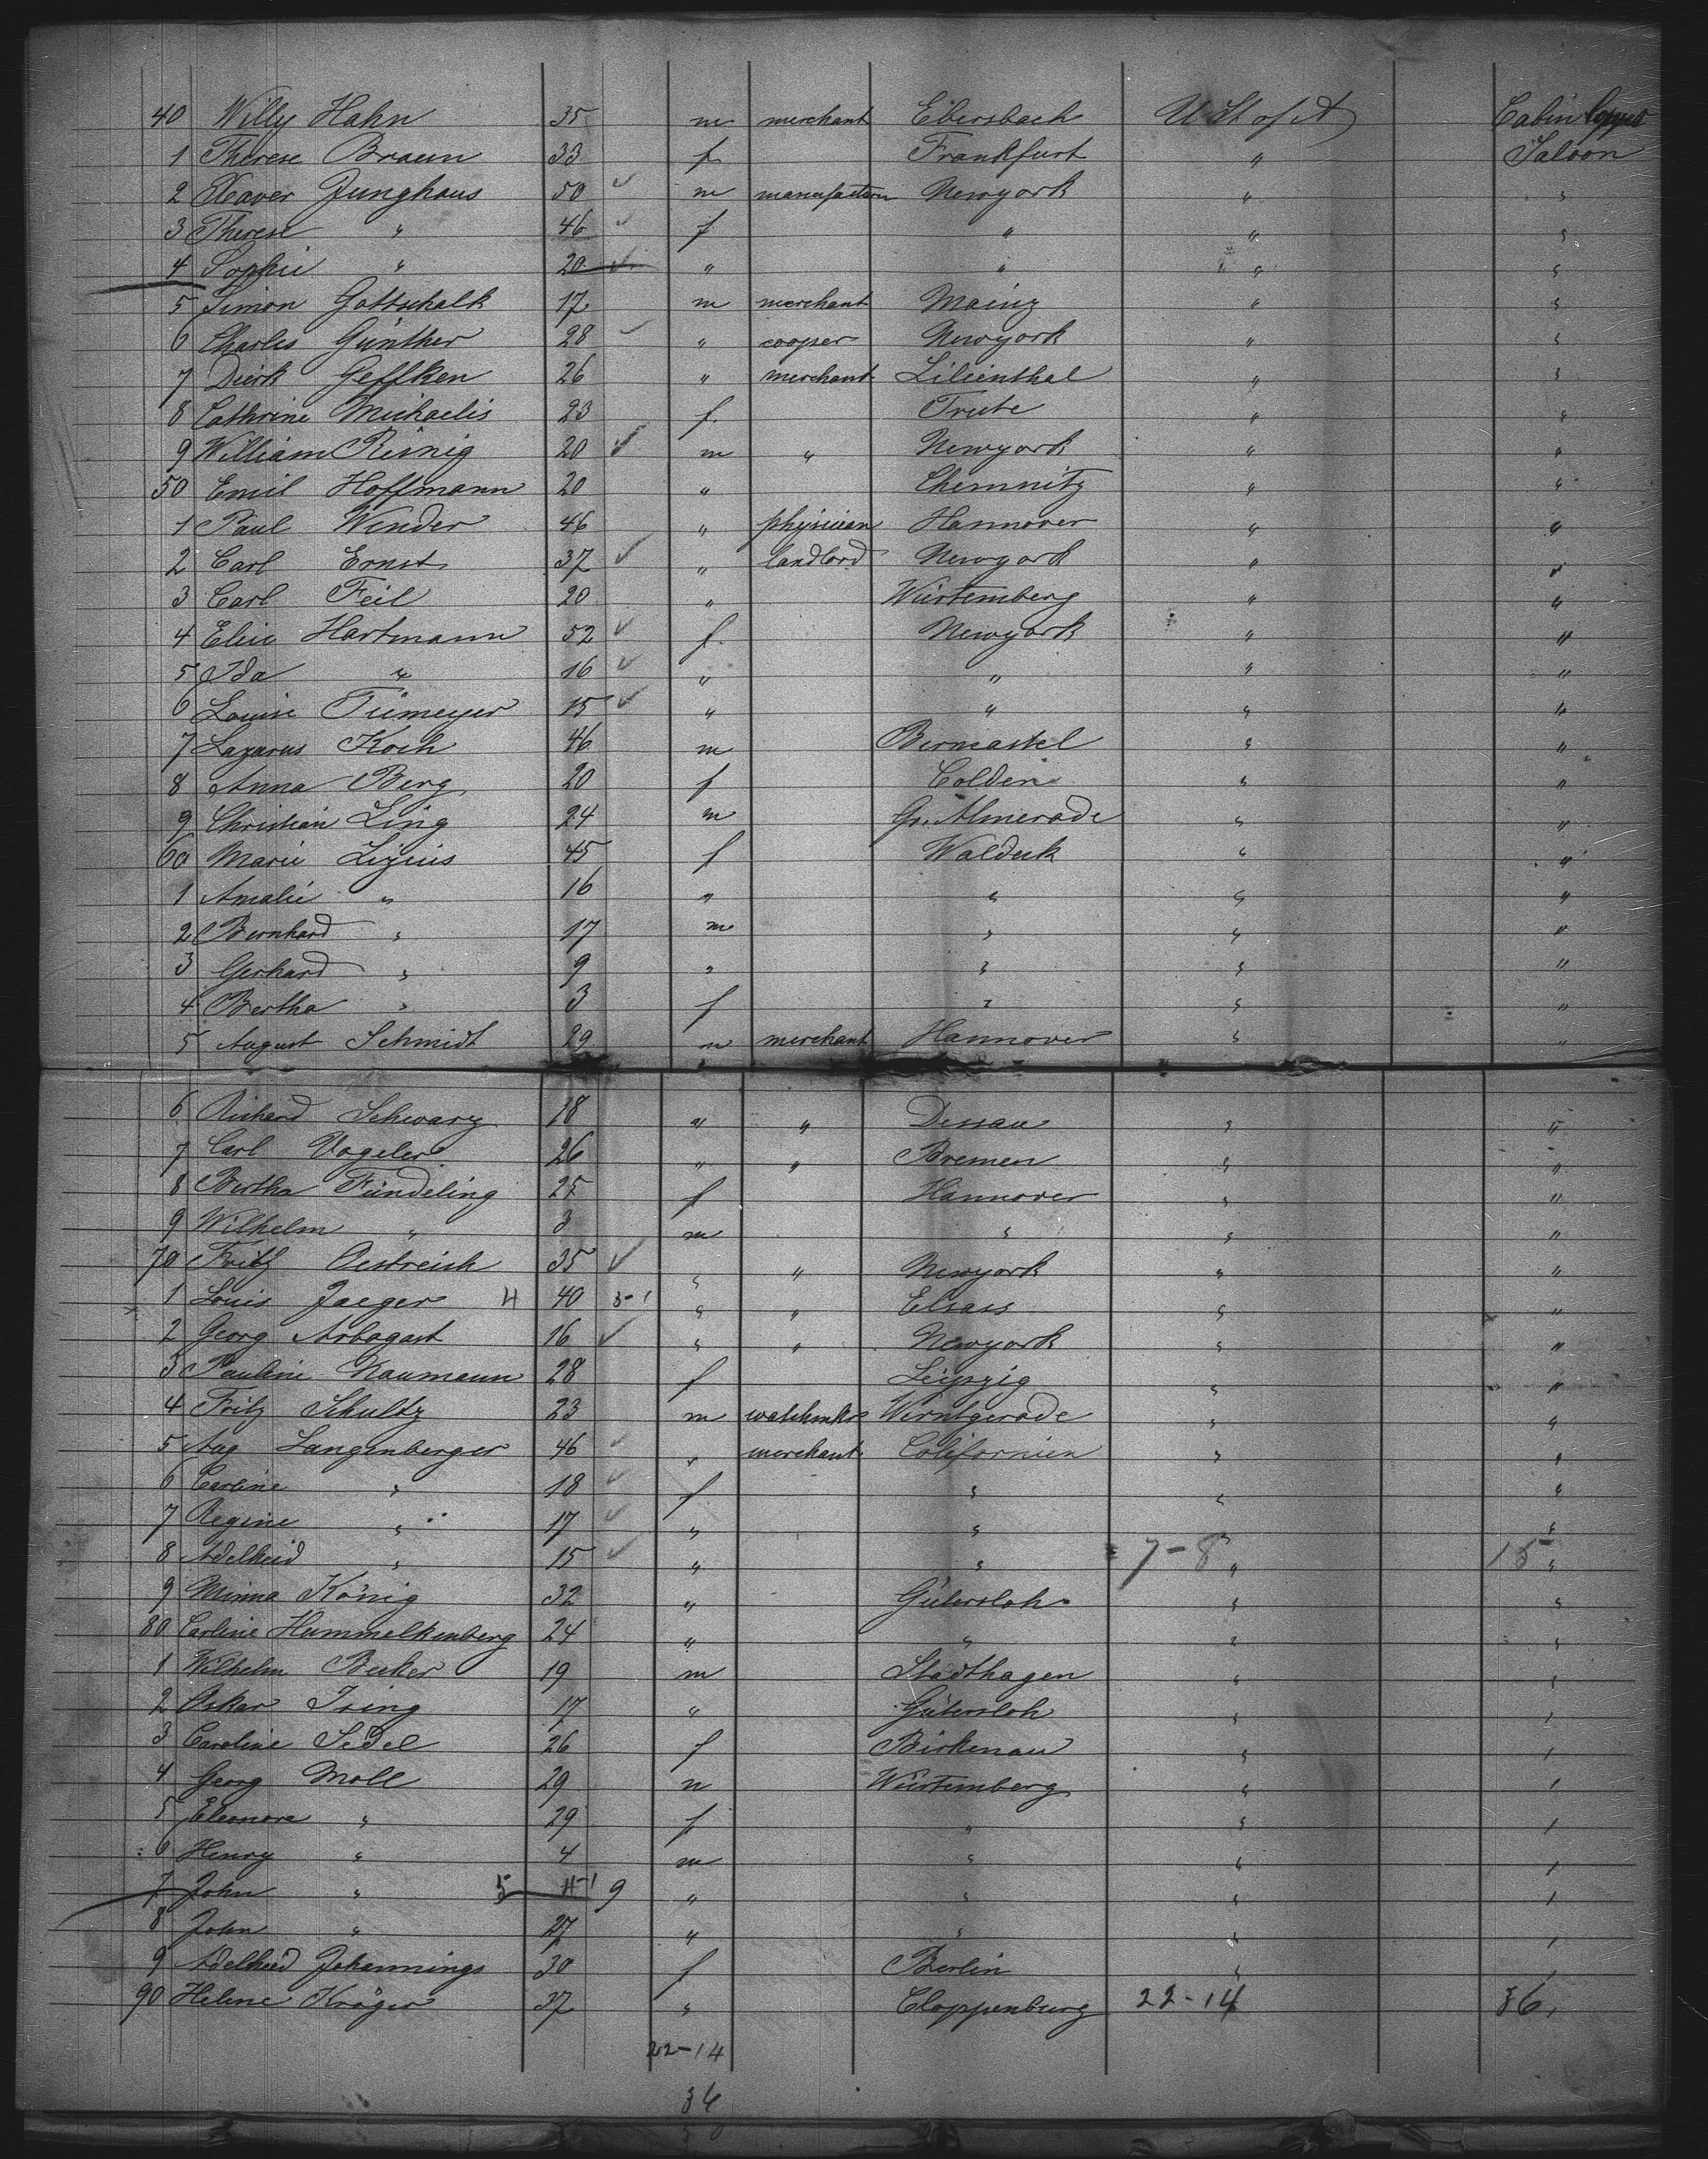 40 Willy Hahn 35 m merchant Ebersbach U St of A Cabin
1 Therese Braun 33 f Frankfurt " Saloon
2 Xaver Junghans 50 m manufacturer Newyork " "
3 Therese " 46 f " " "
4 Sophie " 20 " " " "
5 Simon Gottschalk 17 m merchant Mainz " "
6 Charles Günther 28 " cooper Newyork " "
7 Dierk Geffken 26 " merchant Lilienthal " "
8 Cathrine Michaelis 23 f. Trute " "
9 William Reinig 20 m " Newyork " "
50 Emil Hoffmann 20 " Chemnitz " "
1 Paul Winder 46 " physician Hannover " "
2 Carl Ernst 37 " landlord Newyork " "
3 Carl Feil 20 " Würtemberg " "
4 Elise Hartmann 52 f. Newyork " "
5 Ida " 16 " " " "
6 Louise Tiemeyer 15 " " " "
7 Lazarus Koch 46 m Berncastel " "
8 Anna Berg 20 f Colden " "
9 Christian Ling 24 m Gr. Almerode " "
60 Marie Lizius 45 f Waldeck " "
1 Amalie " 16 " " " "
2 Bernhard " 17 m " " "
3 Gerhard " 9 " " " "
4 Bertha " 3 f " " "
5 August Schmidt 29 m merchant Hannover " "
6 Richard Schwarz 18 " " Dessau " "
7 Carl Vogeler 26 " " Bremen " "
8 Bertha Fündeling 25 f Hannover " "
9 Wilhelm " 3 m " " "
70 Fritz Oestreich 35 " " Newyork " "
1 Louis Jaeger H 40 " " Elsass " "
2 Georg Arbogast 16 " " Newyork " "
3 Pauline Naumann 28 f Leipzig " "
4 Fritz Schultz 23 m watchmkr Wernigerode " "
5 Aug Langenberger 46 " merchant Californien " "
6 Carline " 18 f " " "
7 Regine " 17 " " " "
8 Adelheid " 15 " " 7-8 " 15 "
9 Minna König 32 " Gütersloh " "
80 Carline Hummelkenberg 24 " " " "
1 Wilhelm Becker 19 m Stadthagen " "
2 Oskar Ising 17 " Gütersloh " "
3 Caroline Sedel 26 f Birkenau " "
4 Georg Moll 29 m Würtemberg " "
5 Eleonore " 29 f " " "
6 Henry " 4 m " " "
7 John " 5 11 9 " " " "
8 John " 27 " " " "
9 Adelheid Johannings 30 f Berlin " "
90 Helene Kröger 37 " Cloppenburg 22-14 36
22-14
36